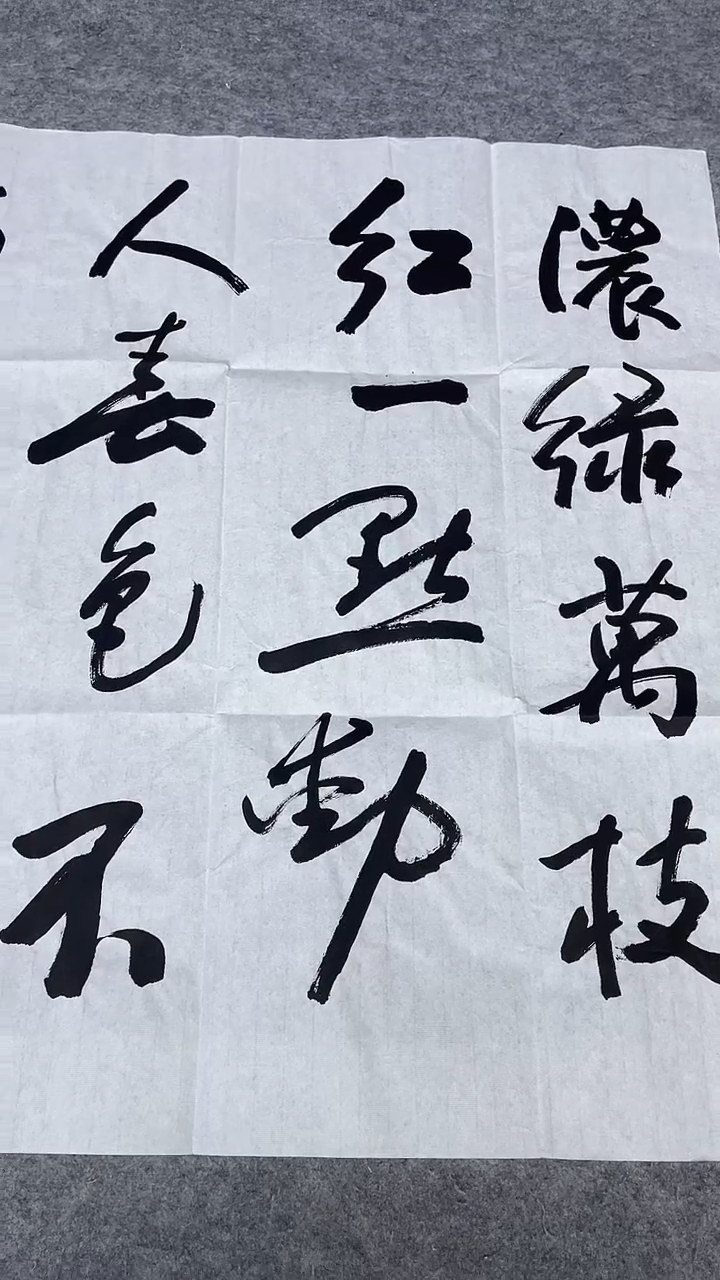 濃緑萬枝
紅一點動
人春色不